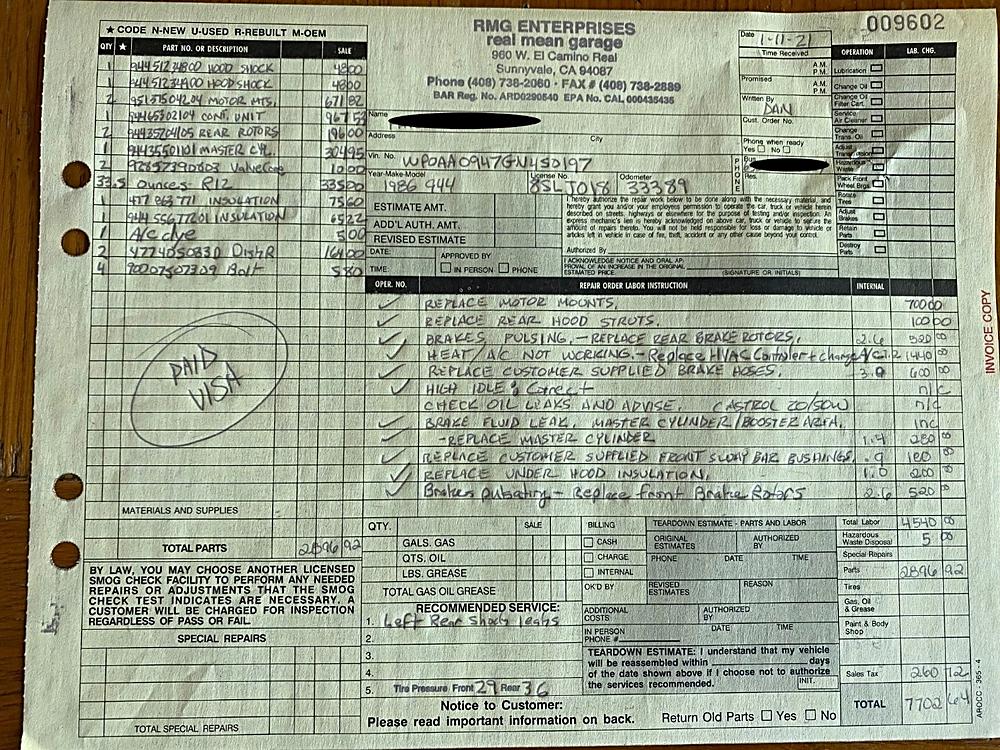 ★ CODE N-NEW U-USED R-REBUILT M-OEM
QTY ★ PART NO. OR DESCRIPTION SALE
1 94451234800 HOOD SHOCK 4800
1 HOODSHOCK 4800
2 95137504204 MOTOR MTS. 67182
1 CONT. UNIT
2 94435204105 REAR ROTORS 19600
1 94435501101 MASTER CYL. 30495
2 Valve Core 1000
33.5 Ounces R12 33500
1 477 863 771 INSULATION 7560
1 944 556 INSULATION
1 A/c dye 500
2 16400
4 Bolt 580
PAID
VISA
MATERIALS AND SUPPLIES
TOTAL PARTS 2896 92
BY LAW, YOU MAY CHOOSE ANOTHER LICENSED
SMOG CHECK FACILITY TO PERFORM ANY NEEDED
REPAIRS OR ADJUSTMENTS THAT THE SMOG
CHECK TEST INDICATES ARE NECESSARY. A
CUSTOMER WILL BE CHARGED FOR INSPECTION
REGARDLESS OF PASS OR FAIL.
SPECIAL REPAIRS
TOTAL SPECIAL REPAIRS
RMG ENTERPRISES
real mean garage
960 W. El Camino Real
Sunnyvale, CA 94087
Phone (408) 738-2060 • FAX # (408) 738-2889
BAR Reg. No. ARD0290540 EPA No. CAL 000435435
009602
Date 1-11-21
Time Received
A.M.
P.M.
Promised
A.M.
P.M.
Written By
DAN
Cust. Order No.
Phone when ready
Yes No
PHONE
Bus.
Res.
Name
Address City
Vin. No. WPOAA0947GN450197
Year-Make-Model License No. Odometer
1986 944 8SLJ018 33389
ESTIMATE AMT.
ADD'L AUTH. AMT.
REVISED ESTIMATE
DATE: APPROVED BY
TIME: IN PERSON PHONE
I hereby authorize the repair work below to be done along with the necessary material, and
hereby grant you and/or your employees permission to operate the car, truck or vehicle herein
described on streets, highways or elsewhere for the purpose of testing and/or inspection. An
express mechanic's lien is hereby acknowledged on above car, truck or vehicle to secure the
amount of repairs thereto. You will not be held responsible for loss or damage to vehicle or
articles left in vehicle in case of fire, theft, accident or any other cause beyond your control.
Authorized By
I ACKNOWLEDGE NOTICE AND ORAL AP-
PROVAL OF AN INCREASE IN THE ORIGINAL
ESTIMATED PRICE. (SIGNATURE OR INITIALS)
OPERATION LAB. CHG.
Lubrication
Change Oil
Change Oil
Filter Cart.
Service
Air Cleaner
Change
Trans. Oil
Adjust
Transmission
Hazardous
Waste
Pack Front
Wheel Brgs
Rotate
Tires
Adjust
Brakes
Retain
Parts
Destroy
Parts
OPER. NO. REPAIR ORDER LABOR INSTRUCTION INTERNAL
REPLACE MOTOR MOUNTS. 700 00
REPLACE REAR HOOD STRUTS. 100 00
BRAKES PULSING. - REPLACE REAR BRAKE ROTORS. 2.6 520 00
HEAT A/C NOT WORKING. - Replace HVAC Controler + charge A/C 7.2 1440 00
REPLACE CUSTOMER SUPPLIED BRAKE HOSES. 3.0 600 00
HIGH IDLE: Correct n/c
CHECK OIL LEAKS AND ADVISE. CASTROL 20/50W n/c
BRAKE FLUID LEAK. MASTER CYLINDER/BOOSTER AREA. inc
- REPLACE MASTER CYLINDER 1.4 280 00
REPLACE CUSTOMER SUPPLIED FRONT SWAY BAR BUSHINGS. .9 180 00
REPLACE UNDER HOOD INSULATION. 1.0 200 00
Brakes pulsating - Replace front Brake Rotors 2.6 520 00
QTY. SALE
GALS. GAS
QTS. OIL
LBS. GREASE
TOTAL GAS OIL GREASE
BILLING
CASH
CHARGE
INTERNAL
OK'D BY
TEARDOWN ESTIMATE - PARTS AND LABOR
ORIGINAL ESTIMATES AUTHORIZED BY
PHONE DATE TIME
REVISED ESTIMATES REASON
ADDITIONAL COSTS AUTHORIZED BY
IN PERSON
PHONE # DATE TIME
TEARDOWN ESTIMATE: I understand that my vehicle
will be reassembled within days
of the date shown above if I choose not to authorize
the services recommended. INIT.
RECOMMENDED SERVICE:
1. Left Rear Shock leaks
2.
3.
4.
5. Tire Pressure Front 29 Rear 36
Notice to Customer:
Please read important information on back.
Return Old Parts Yes No
Total Labor 4540 00
Hazardous
Waste Disposal 5 00
Special Repairs
Parts 2896 92
Tires
Gas, Oil
& Grease
Paint & Body
Shop
Sales Tax 260 72
TOTAL 7702 64
INVOICE COPY
AROCC - 365 - 4